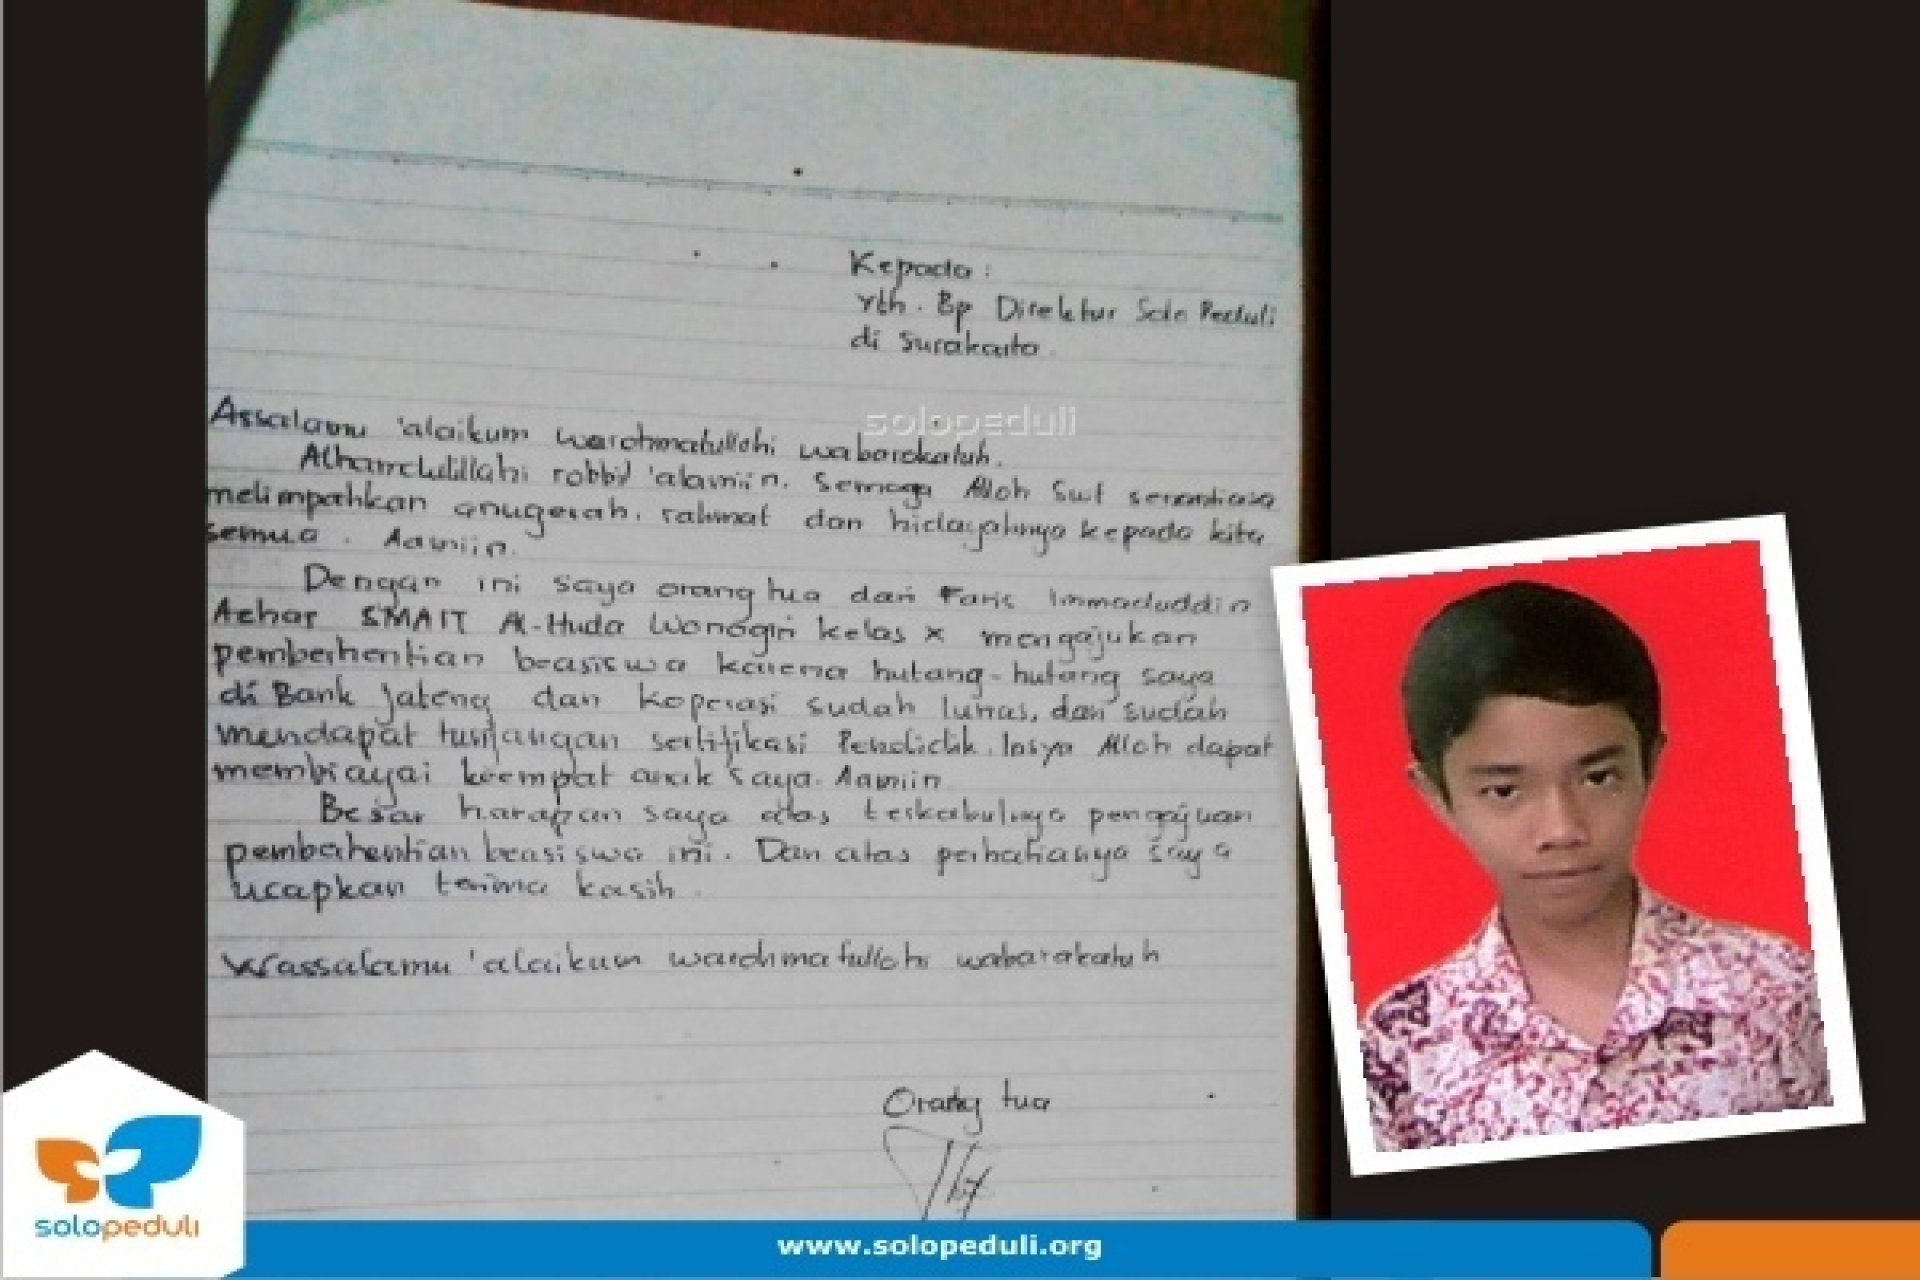 Kepada :
Yth. Bp Direktur Solo Peduli
di Surakarta.
solopeduli
Assalamu 'alaikum warohmatullohi wabarokatuh.
Alhamdulillahi robbil 'alamiin. Semoga Alloh Swt senantiasa
melimpahkan anugerah, rahmat dan hidayahnya kepada kita
semua. Aamiin.
Dengan ini saya orang tua dari Faris Immaduddin
Azhar SMAIT Al-Huda Wonogiri kelas X mengajukan
pemberhentian beasiswa karena hutang-hutang saya
di Bank Jateng dan koperasi sudah lunas, dan sudah
mendapat tunjangan sertifikasi Pendidik. Insya Alloh dapat
membiayai keempat anak saya. Aamiin
Besar harapan saya atas terkabulnya pengajuan
pemberhentian beasiswa ini. Dan atas perhatianya saya
ucapkan terima kasih.
Wassalamu 'alaikum warohmatullohi wabarakatuh
Orang tua
solopeduli
www.solopeduli.org